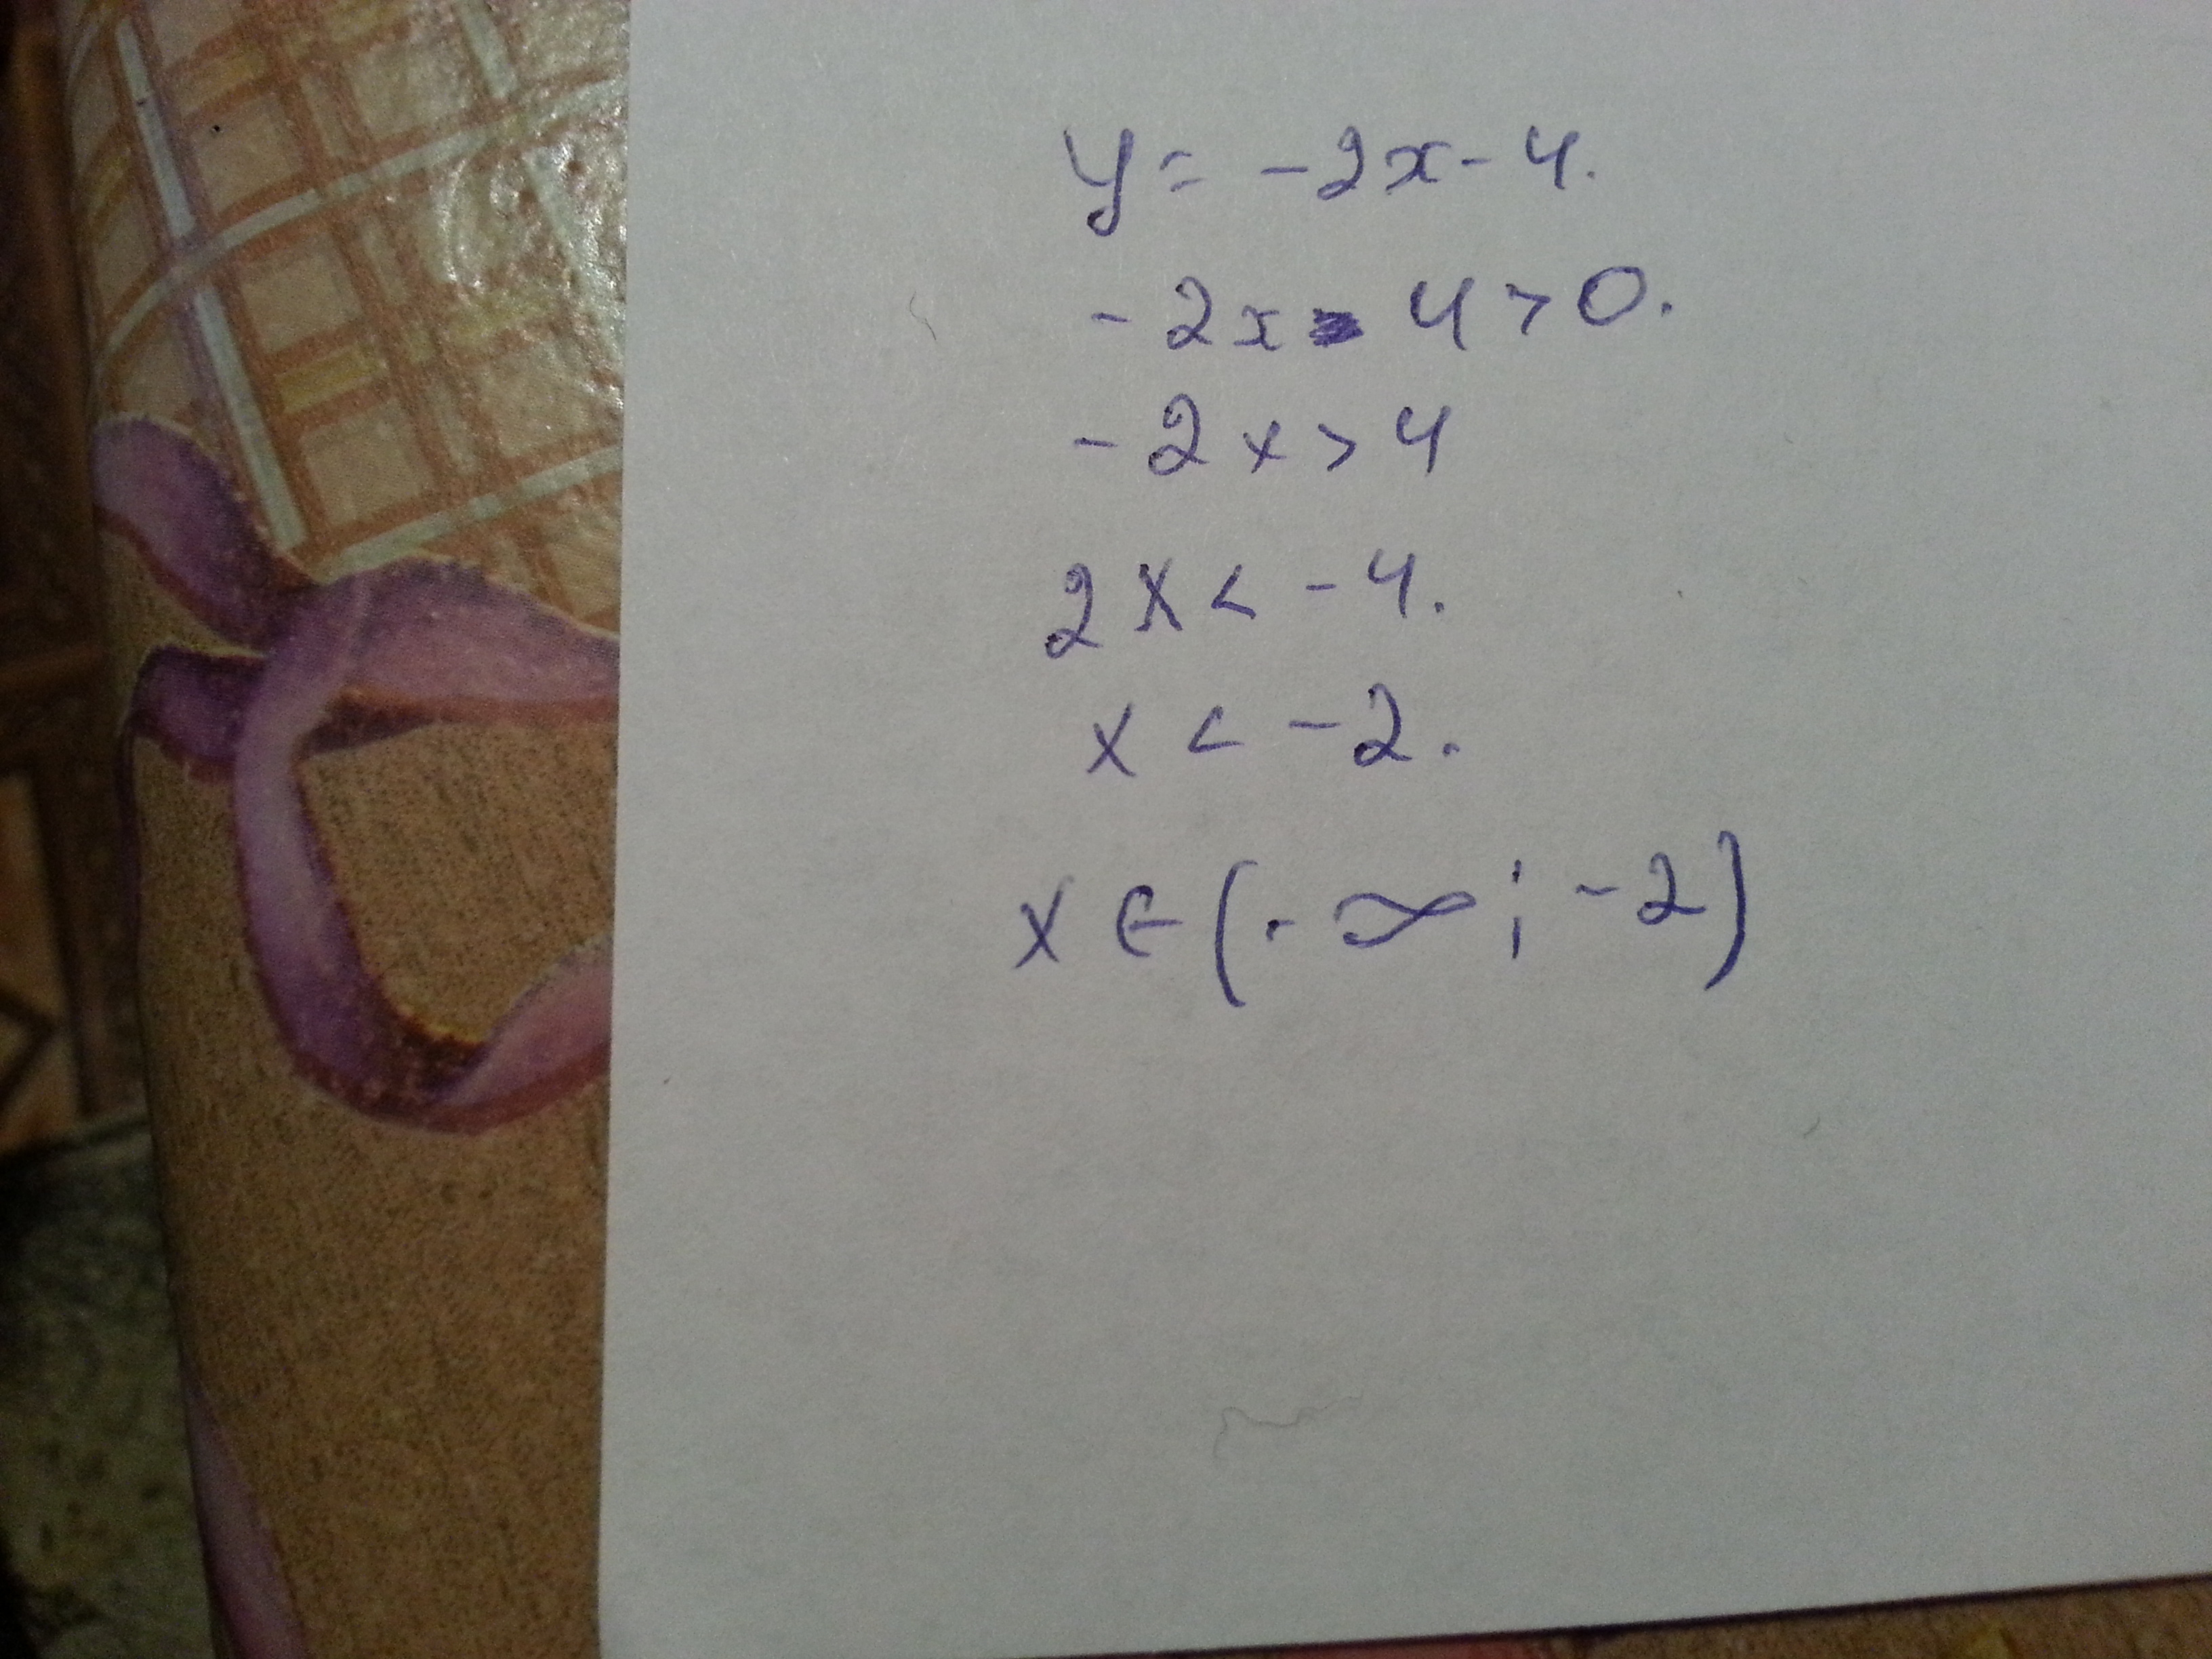 y = -2x - 4.
-2x - 4 > 0.
-2x > 4
2x < -4.
x < -2.
x ∈ (-∞; -2)